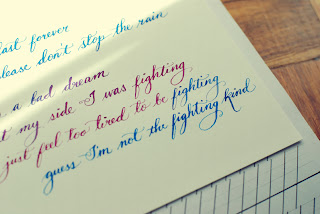 last forever
please don't stop the rain
a bad dream
my side I was fighting
just feel too tired to be fighting
guess I'm not the fighting kind